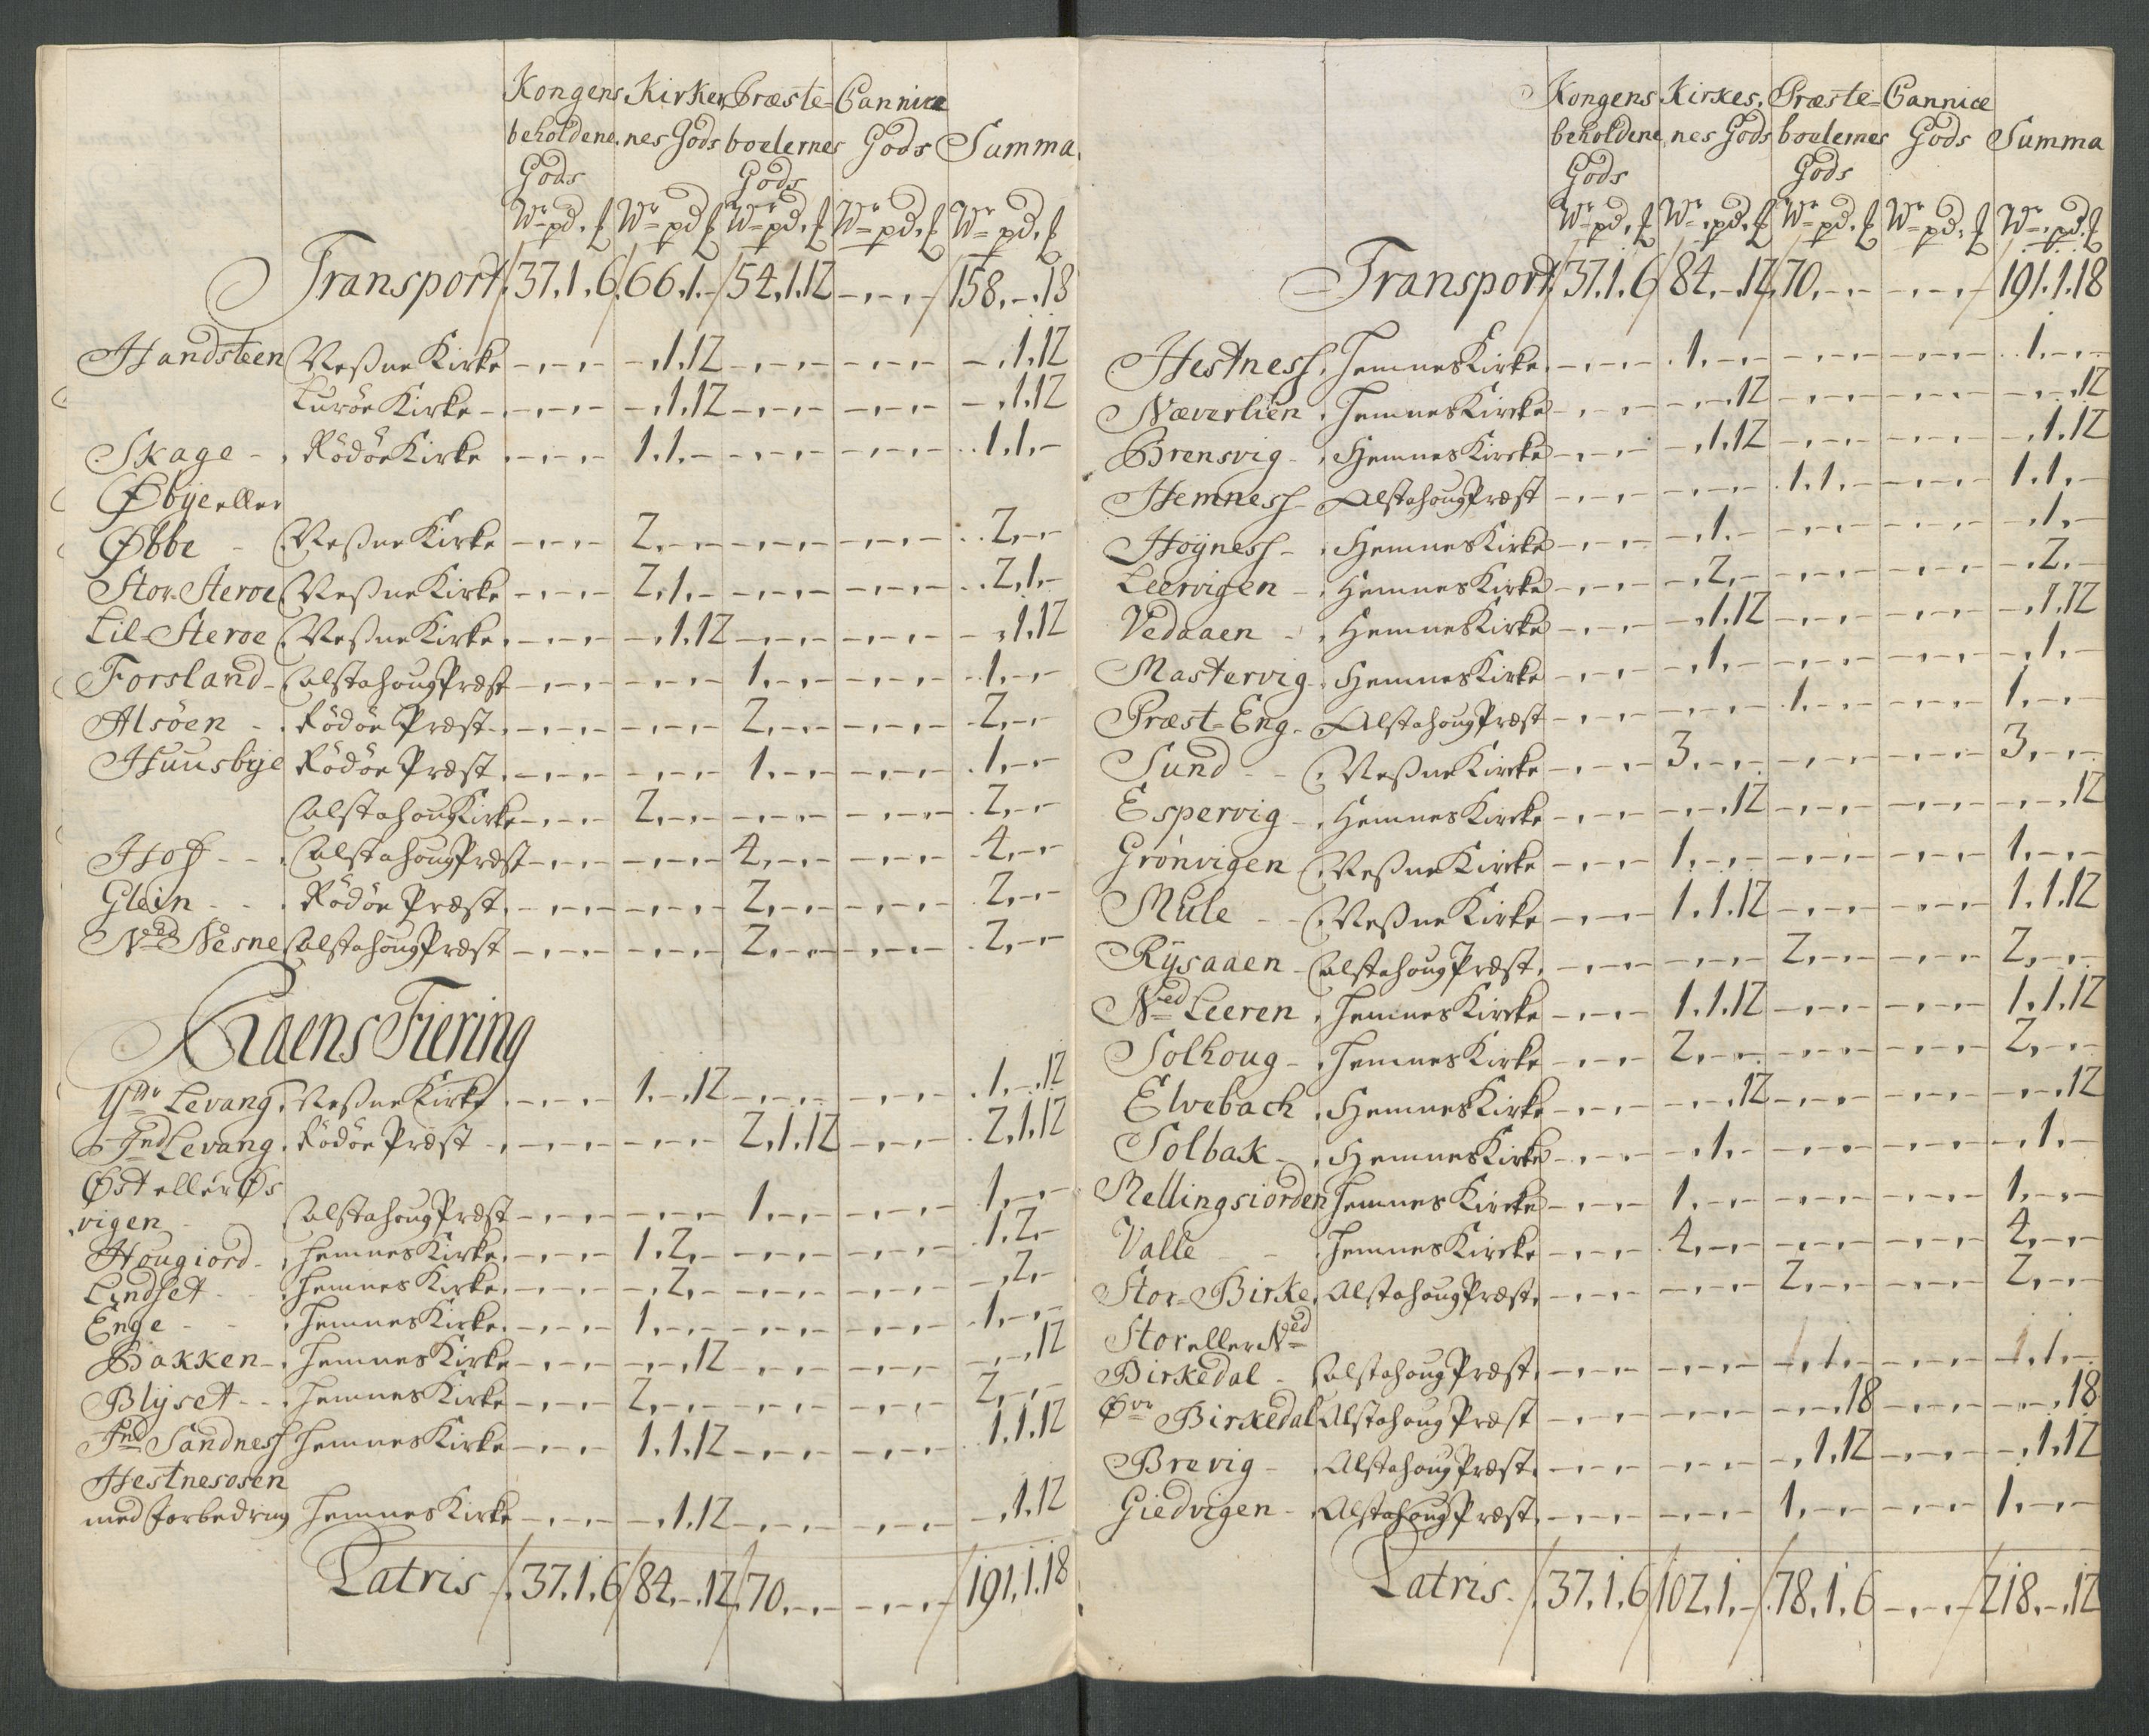 Kongens Kirker Præste- Cannice
beholdene nes Gods boelernes Gods Summa
Gods Gods
Wr pd. Wr pd Wr pd. Wr pd. Wr pd.
Transport /.37.1.6/.66.1.-/54.1.12 -.-.-/158.-.18
Handsteen Veßne Kirke -.-.- -.1.12 -.-.- -.-.- -.1.12
Lurøe Kirke -.-.- -.1.12 -.-.- -.-.- -.1.12
Skage - Rödöe Kirke -.-.- 1.1.- -.-.- -.-.- 1.1.-
Øbye eller
Øbbe - Veßne Kirke -.-.- 2.-.- -.-.- -.-.- 2.-.-
Stor-Steroe Veßne Kirke -.-.- 2.1.- -.-.- -.-.- 2.1.-
Lil-Steroe Veßne Kirke -.-.- -.1.12 -.-.- -.-.- -.1.12
Forsland - Alstahoug Præst -.-.- -.-.- 1.-.- -.-.- 1.-.-
Alsöen - Rödöe Præst -.-.- -.-.- 2.-.- -.-.- 2.-.-
Huusbye Rödöe Præst -.-.- -.-.- 1.-.- -.-.- 1.-.-
Alstahoug Kirke -.-.- 2.-.- -.-.- -.-.- 2.-.-
Hof - - Alstahoug Præst -.-.- -.-.- 4.-.- -.-.- 4.-.-
Glein - - Rödöe Præst -.-.- -.-.- 2.-.- -.-.- 2.-.-
Ned Nesne Alstahoug Præst -.-.- -.-.- 2.-.- -.-.- 2.-.-
Raens Fiering
Ytr Levang Veßne Kirke -.-.- 1.-.12 -.-.- -.-.- 1.-.12
Ind Levang Rödöe Præst -.-.- -.-.- 2.1.12 -.-.- 2.1.12
Øst eller Øs
vigen Alstahoug Præst -.-.- -.-.- 1.-.- -.-.- 1.-.-
Hougiord - Hemnes Kirke -.-.- 1.2.- -.-.- -.-.- 1.2.-
Lindset - Hemnes Kirke -.-.- -.2.- -.-.- -.-.- -.2.-
Enge - - Hemnes Kirke -.-.- 1.-.- -.-.- -.-.- 1.-.-
Bakken - Hemnes Kirke -.-.- -.-.12 -.-.- -.-.- -.-.12
Blyset - - Hemnes Kirke -.-.- 2.-.- -.-.- -.-.- 2.-.-
Ind Sandness Hemnes Kirke -.-.- 1.1.12 -.-.- -.-.- 1.1.12
Hestnesosen
med forbedring Hemnes Kirke -.-.- -.1.12 -.-.- -.-.- -.1.12
Latris /.37.1.6/84.-.12/.70.-.- -.-.-/191.1.18
Kongens Kirkes, Præste- Cannice
beholdene nes Gods boelernes Gods Summa
Gods Gods
Wr pd. Wr pd. Wr pd. Wr pd. Wr pd.
Transport /37.1.6/84.-.12/70.-.- -.-.-/191.1.18
Hestness. Hemnes Kirke -.-.- 1.-.- -.-.- -.-.- 1.-.-
Næverlien Hemnes Kircke -.-.- -.-.12 -.-.- -.-.- -.-.12
Brensvig - Hemnes Kircke -.-.- -.1.12 -.-.- -.-.- -.1.12
Hemness - Alstahoug Præst -.-.- -.-.- 1.1.- -.-.- 1.1.-
Høyness - Hemnes Kirke -.-.- -.1.- -.-.- -.-.- -.1.-
Leervigen - Hemnes Kirke -.-.- -.2.- -.-.- -.-.- -.2.-
Vedaaen - Hemnes Kirke -.-.- -.1.12 -.-.- -.-.- -.1.12
Mastervig - Hemnes Kirke -.-.- -.1.- -.-.- -.-.- -.1.-
Præst-Eng - Alstahoug Præst -.-.- -.-.- 1.-.- -.-.- 1.-.-
Sund - - Veßne Kircke -.-.- 3.-.- -.-.- -.-.- 3.-.-
Espervig - Hemnes Kircke -.-.- -.-.12 -.-.- -.-.- -.-.12
Grönvigen Veßne Kircke -.-.- 1.-.- -.-.- -.-.- 1.-.-
Mule - - Veßne Kirke -.-.- 1.1.12 -.-.- -.-.- 1.1.12
Rysaaen - Alstahoug Præst -.-.- -.-.- 2.-.- -.-.- 2.-.-
Ned Leeren Hemnes Kircke -.-.- 1.1.12 -.-.- -.-.- 1.1.12
Solhoug - Hemnes Kirke -.-.- 2.-.- -.-.- -.-.- 2.-.-
Elvebach Hemnes Kirke -.-.- -.-.12 -.-.- -.-.- -.-.12
Solbak - Hemnes Kirke -.-.- -.1.- -.-.- -.-.- -.1.-
Mellingsiorden Hemnes Kircke -.-.- 1.-.- -.-.- -.-.- 1.-.-
Valle - Hemnes Kircke -.-.- 4.-.- -.-.- -.-.- 4.-.-
Stor-Birke Alstahoug Præst -.-.- -.-.- 2.-.- -.-.- 2.-.-
Stor eller Ned
Birkedal - Alstahoug Præst -.-.- -.-.- 1.1.- -.-.- 1.1.-
Øvr Birkedal Alstahoug Præst -.-.- -.-.- -.-.18 -.-.- -.-.18
Brevig - Alstahoug Præst -.-.- -.-.- -.1.12 -.-.- -.1.12
Giedvigen - Alstahoug Præst -.-.- -.-.- 1.-.- -.-.- 1.-.-
Latris - /.37.1.6/102.1.-/.78.1.6 -.-.-/218.-.12